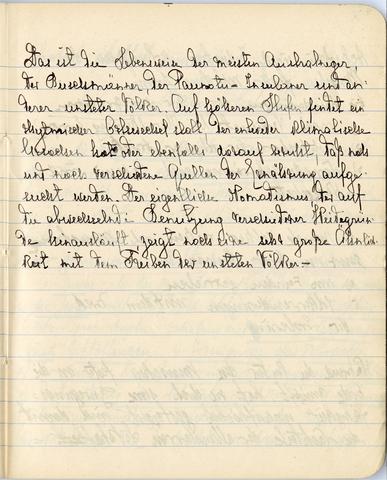 Das ist die Lebensweise der meisten Australneger,
der Buschmänner, der Paumotu-Insulaner und an-
derer unsteter Völker. Auf höheren Stufen findet ein
rhytmischer Ortswechsel statt der entweder klimatische
Ursachen hat oder ebenfalls darauf beruht, daß nach
und nach verschiedene Quellen der Ernährung aufge-
sucht werden. Der eigentliche Nomadismus der auf
die abwechselnde Benützung verschiedener Weidegrün-
de hinausläuft, zeigt noch eine sehr große Ähnlich-
keit mit dem Treiben der unsteten Völker –